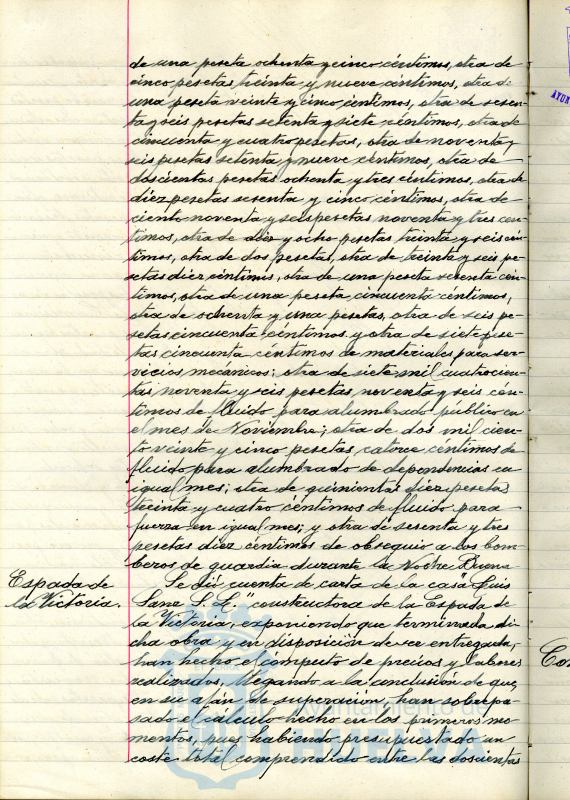 de una peseta ochenta y cinco céntimos, otra de
cinco pesetas, treinta y nueve céntimos, otra de
una peseta veinte y cinco céntimos, otra de sesen
ta y seis pesetas setenta y siete céntimos, otra de
cincuenta y cuatro pesetas, otra de noventa y
seis pesetas setenta y nueve céntimos, otra de
doscientas pesetas ochenta y tres céntimos, otra de
diez pesetas sesenta y cinco céntimos, otra de
ciento noventa y seis pesetas noventa y tres cén
timos, otra de diez y ocho pesetas treinta y seis cén
timos, otra de dos pesetas, otra de treinta y seis pe-
setas diez céntimos, otra de una peseta sesenta cén
timos, otra de una peseta, cincuenta céntimos,
otra de ochenta y una pesetas, otra de seis pe-
setas cincuenta céntimos y otra de siete pese
tas cincuenta céntimos de materiales para ser-
vicios mecánicos; otra de siete mil cuatrocien
tas noventa y seis pesetas, noventa y seis cén-
timos de fluido para alumbrado público en
el mes de Noviembre; otra de dos mil cien-
to veinte y cinco pesetas, catorce céntimos de
fluido para alumbrado de dependencias en
igual mes; otra de quinientas diez pesetas
treinta y cuatro céntimos de fluido para
fuerza en igual mes; y otra de sesenta y tres
pesetas diez céntimos de obsequio a los bom-
beros de guardia durante la Noche Buena
Espada de
la Victoria.
Se dió cuenta de carta de la casa "Luis
Sanz S.L." constructora de la Espada de
la Victoria, exponiendo que terminada di
cha obra y en disposición de ser entregada,
han hecho el computo de precios y labores
realizados, llegando a la conclusión de que,
en su afán de superación han sobrepa-
sado el cálculo hecho en los primeros mo-
mentos, pues habiendo presupuestado un
coste total comprendido entre las doscientas
Ayuntamiento de
HUELVA